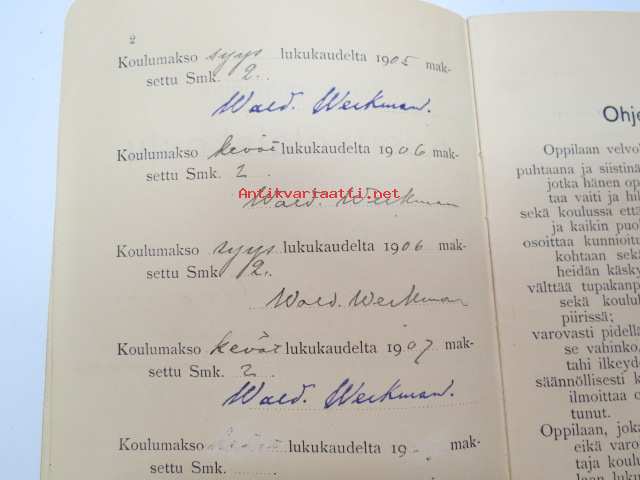 2
Koulumakso syys lukukaudelta 1905 mak-
settu Smk. 2.
Wald. Werkman.
Koulumakso kevät lukukaudelta 1906 mak-
settu Smk. 2
Antikvariaatti.net
Wald. Werkman
Koulumakso syys lukukaudelta 1906 mak-
settu Smk. 2.
Wald. Werkman
Koulumakso kevät lukukaudelta 1907 mak-
settu Smk. 2
Wald. Werkman.
Koulumakso lukukaudelta 19 mak-
settu Smk.
Ohje
Oppilaan velvo
puhtaana ja siistinä
jotka hänen op
taa vaiti ja hi
sekä koulussa ett
ja kaikin puo
osoittaa kunnioit
kohtaan sekä
heidän käsky
välttää tupakanp
sekä koulu
piirissä;
varovasti pidellä
se vahinko,
tahi ilkeyde
säännöllisesti k
ilmoittaa c
tunut.
Oppilaan, joka
eikä varo
taja koulu
laan luok